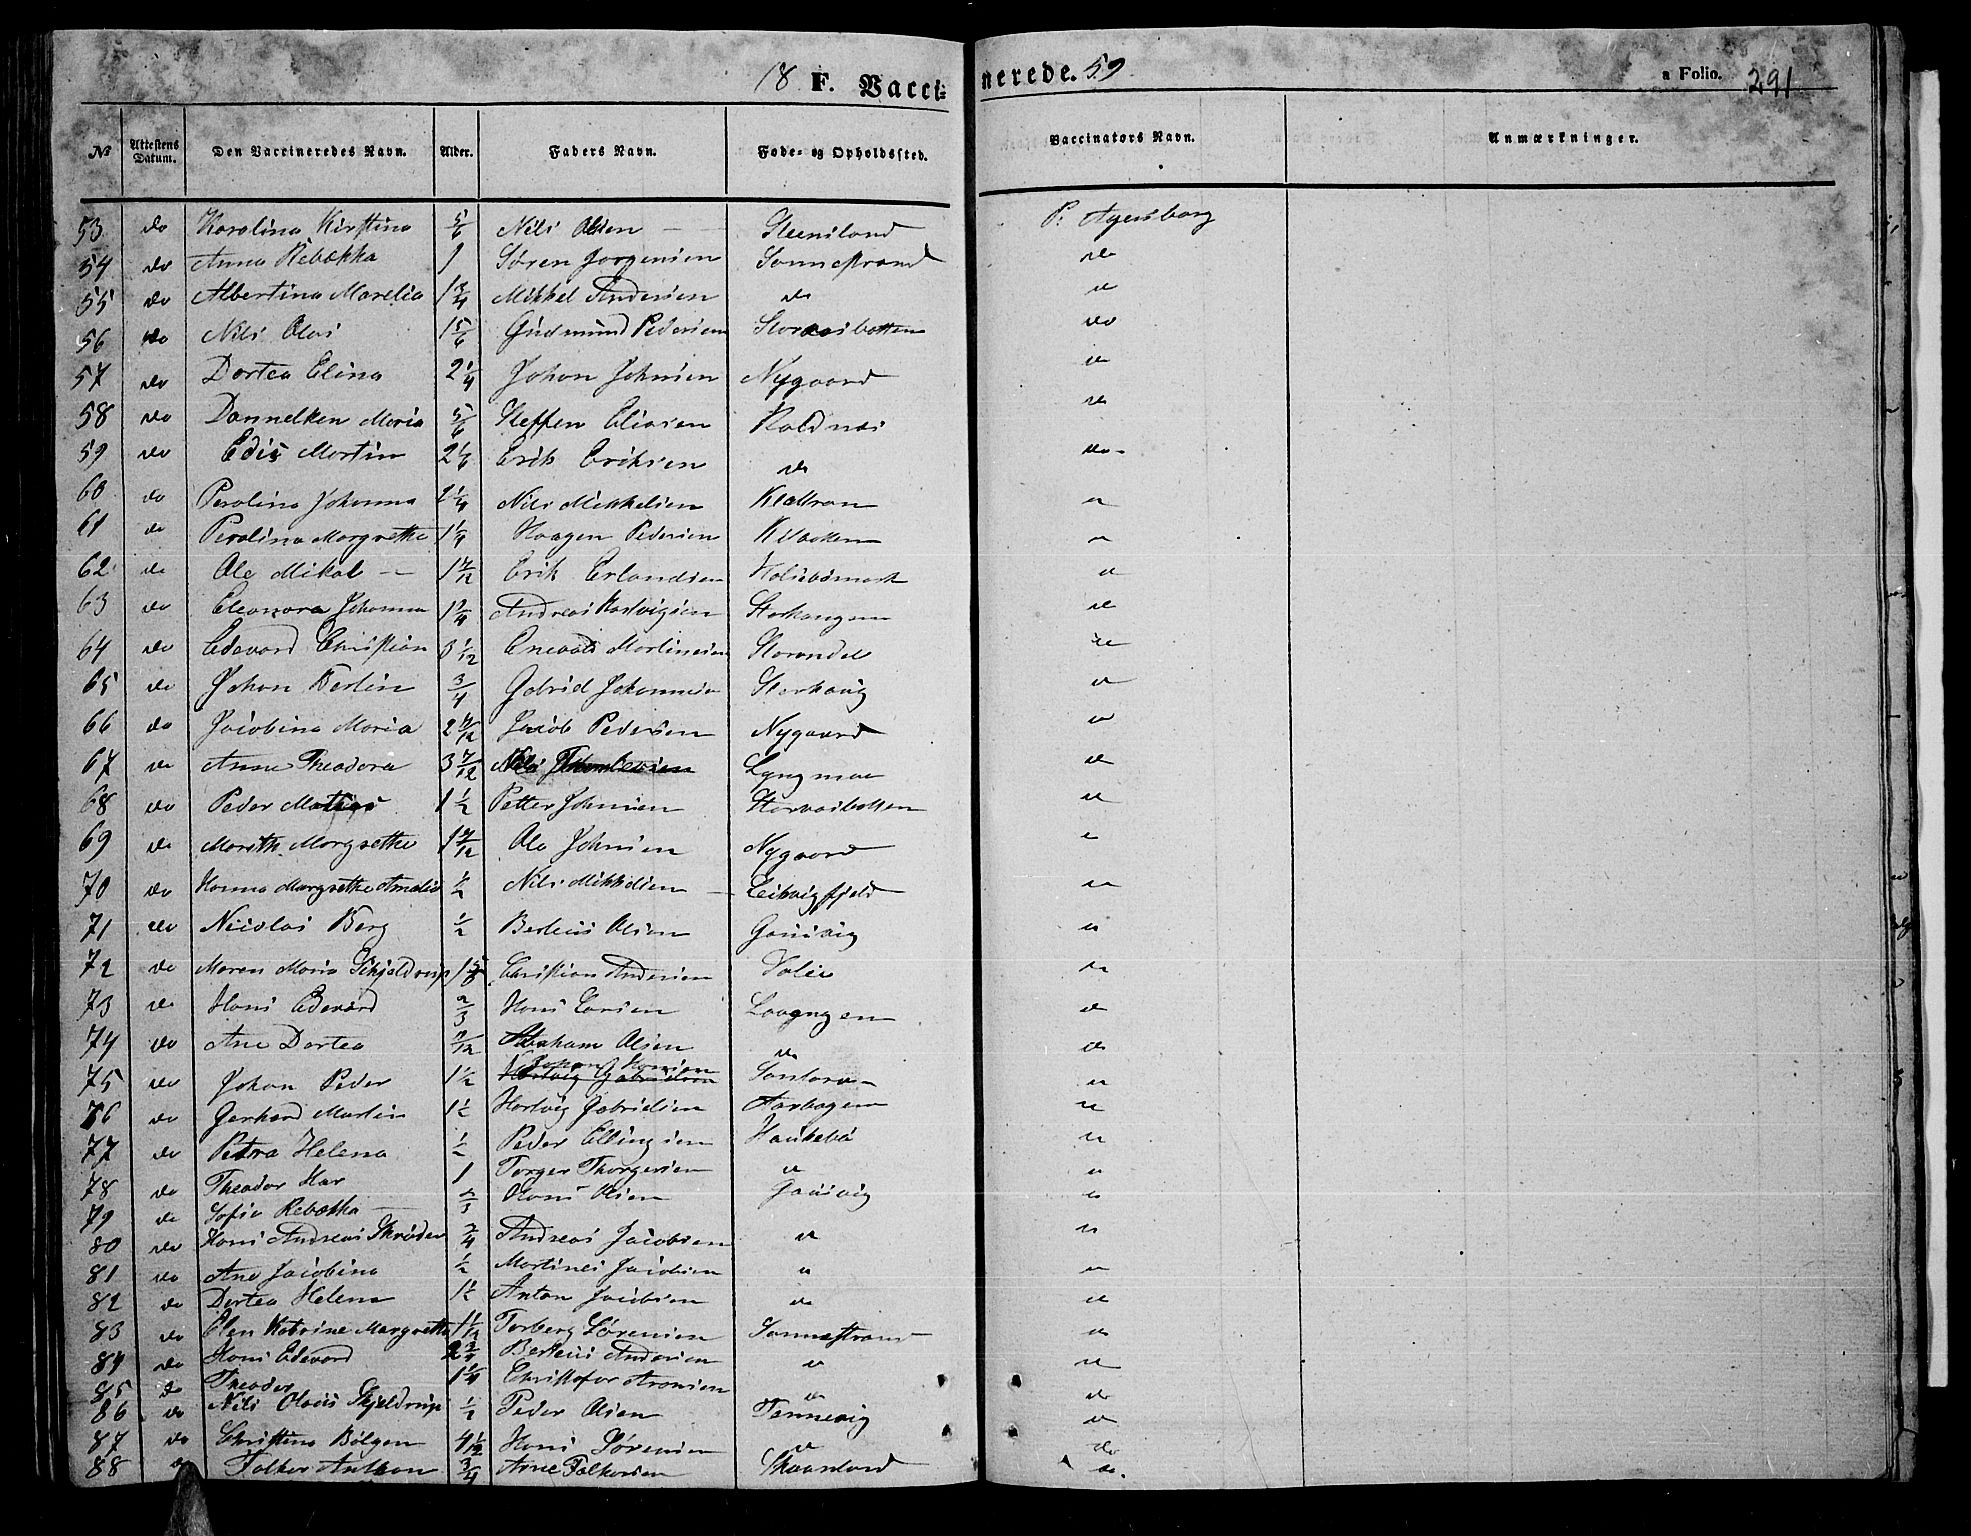 18 F. Vacci= nerede. 59 a Folio. 291
№ Attestens Datum. Den Vaccineredes Navn. Alder. Faders Navn. Føde- og Opholdssted. Vaccinators Navn. Anmærkninger.
53 do Karolina Kirstina 5/6 Nils Olsen Steensland P. Agersborg
54 do Anna Rebækka 1 Søren Jørgensen Sannestrand do
55 do Albertina Marelia 1 3/4 Mikkel Andersen do do
56 do Nils Olai 1 5/6 Gudmund Pedersen Storvasbotten do
57 do Dortea Elina 2 1/4 Johan Johnsen Nygaard do
58 do Dannelken Maria 5/6 Steffen Eliasen Raldnæs do
59 do Edis Martin 2 1/6 Erik Eriksen do do
60 do Perolina Johanna 2 1/4 Nils Mikkelsen do
61 do Perolina Margrethe 1 1/4 Haagen Pedersen Kvitbakken do
62 do Ole Mikal 1 7/12 Erik Erlandsen do
63 do Eleonora Johanna 1 3/4 Andreas Hartvigsen Storhaugen do
64 do Edevard Christian 3 1/12 Enevold Martinsen Storandel do
65 do Johan Berlin 3/4 Gabriel Johannesen Storhaug do
66 do Jacobina Maria 2 7/12 Jacob Pedersen Nygaard do
67 do Anne Theodora 3 7/12 Nils Lyngmoe do
68 do Peder Matias 1 1/2 Petter Johnsen Storvasbotten do
69 do Marith Margrethe 1 7/12 Ole Johnsen Nygaard do
70 do Hanna Margrethe Amalia 1/2 Nils Mikkelsen Leikvigfjeld do
71 do Nicolai Berg 1/2 Berteus Olsen Gausvig do
72 do Maren Maria Schjeldrup 1 5/8 Christian Andersen Valie do
73 do Hans Edevard 2/3 Hans Larsen Laugngen do
74 do Ane Dortea 7/12 Abraham Olsen do do
75 do Johan Peder 1 1/2 Hartvig Gabrielsen Johan Hansen Santorv do
76 do Gerhard Martin 1 1/2 Hartvig Gabrielsen Aarbogen do
77 do Petra Helena 1/2 Peder Ellingsen Haukebø do
78 do Theodor Har 1 Torger Thorgersen do do
79 do Sofia Rebækka 2/3 Hans Olsen Gausvig do
80 do Hans Andreas Skrøder 3/4 Andreas Jacobsen do do
81 do Ane Jacobina 1/2 Martines Jacobsen do do
82 do Dortea Helena 1 1/2 Anton Jacobsen do do
83 do Elen Katrine Margrethe 1 1/12 Torberg Sørensen Sannestrand do
84 do Hans Edevard 2 2/3 Berteus Andersen do do
85 do Theodor 1 1/4 Christofer Aronsen do do
86 do Nils Olaus Skjeldrup 1/2 Peder Olsen Tennevig do
87 do Christina Bølgen 4 1/12 Hans Sørensen do do
88 do Falkor Anthon 3/4 Arne Falkorsen Skaanland do